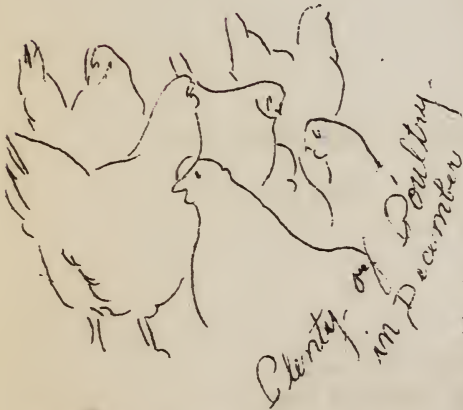 Plenty of Poultry.
in December